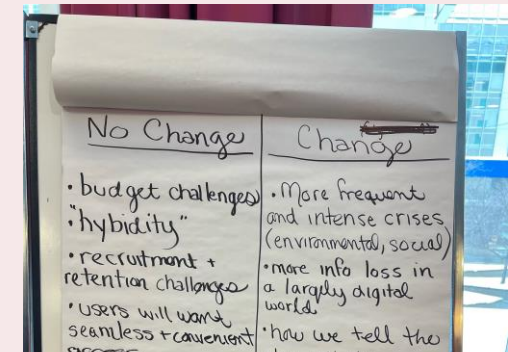 No Change
• budget challenges
• "hybidity"
• recruitment +
retention challenges
• users will want
seamless + convenient
Change
• More frequent
and intense crises
(environmental, social)
• more info loss in
a largely digital
world
• how we tell the